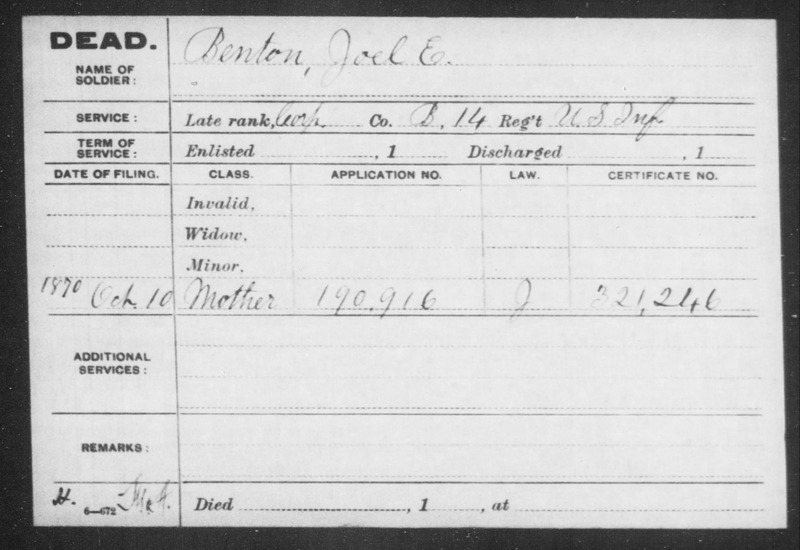 DEAD.
NAME OF SOLDIER: Benton, Joel E.
SERVICE: Late rank, Corp Co. B, 14 Reg't U S Inf
TERM OF SERVICE: Enlisted , 1 Discharged , 1
DATE OF FILING. CLASS. APPLICATION NO. LAW. CERTIFICATE NO.
Invalid,
Widow,
Minor,
1870 Oct. 10 Mother 190,916 J 321,246
ADDITIONAL SERVICES:
REMARKS:
H. 6—672 Died , 1 , at